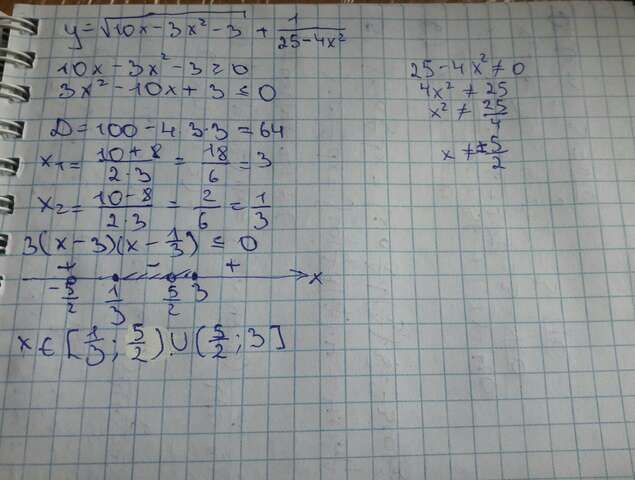 y = √(10x - 3x² - 3) + 1/(25 - 4x²)
10x - 3x² - 3 ≥ 0
3x² - 10x + 3 ≤ 0
D = 100 - 4·3·3 = 64
x₁ = (10 + 8)/(2·3) = 18/6 = 3
x₂ = (10 - 8)/(2·3) = 2/6 = 1/3
3(x - 3)(x - 1/3) ≤ 0
+ - +
-5/2 1/3 5/2 3 x
x ∈ [1/3; 5/2) ∪ (5/2; 3]
25 - 4x² ≠ 0
4x² ≠ 25
x² ≠ 25/4
x ≠ ±5/2